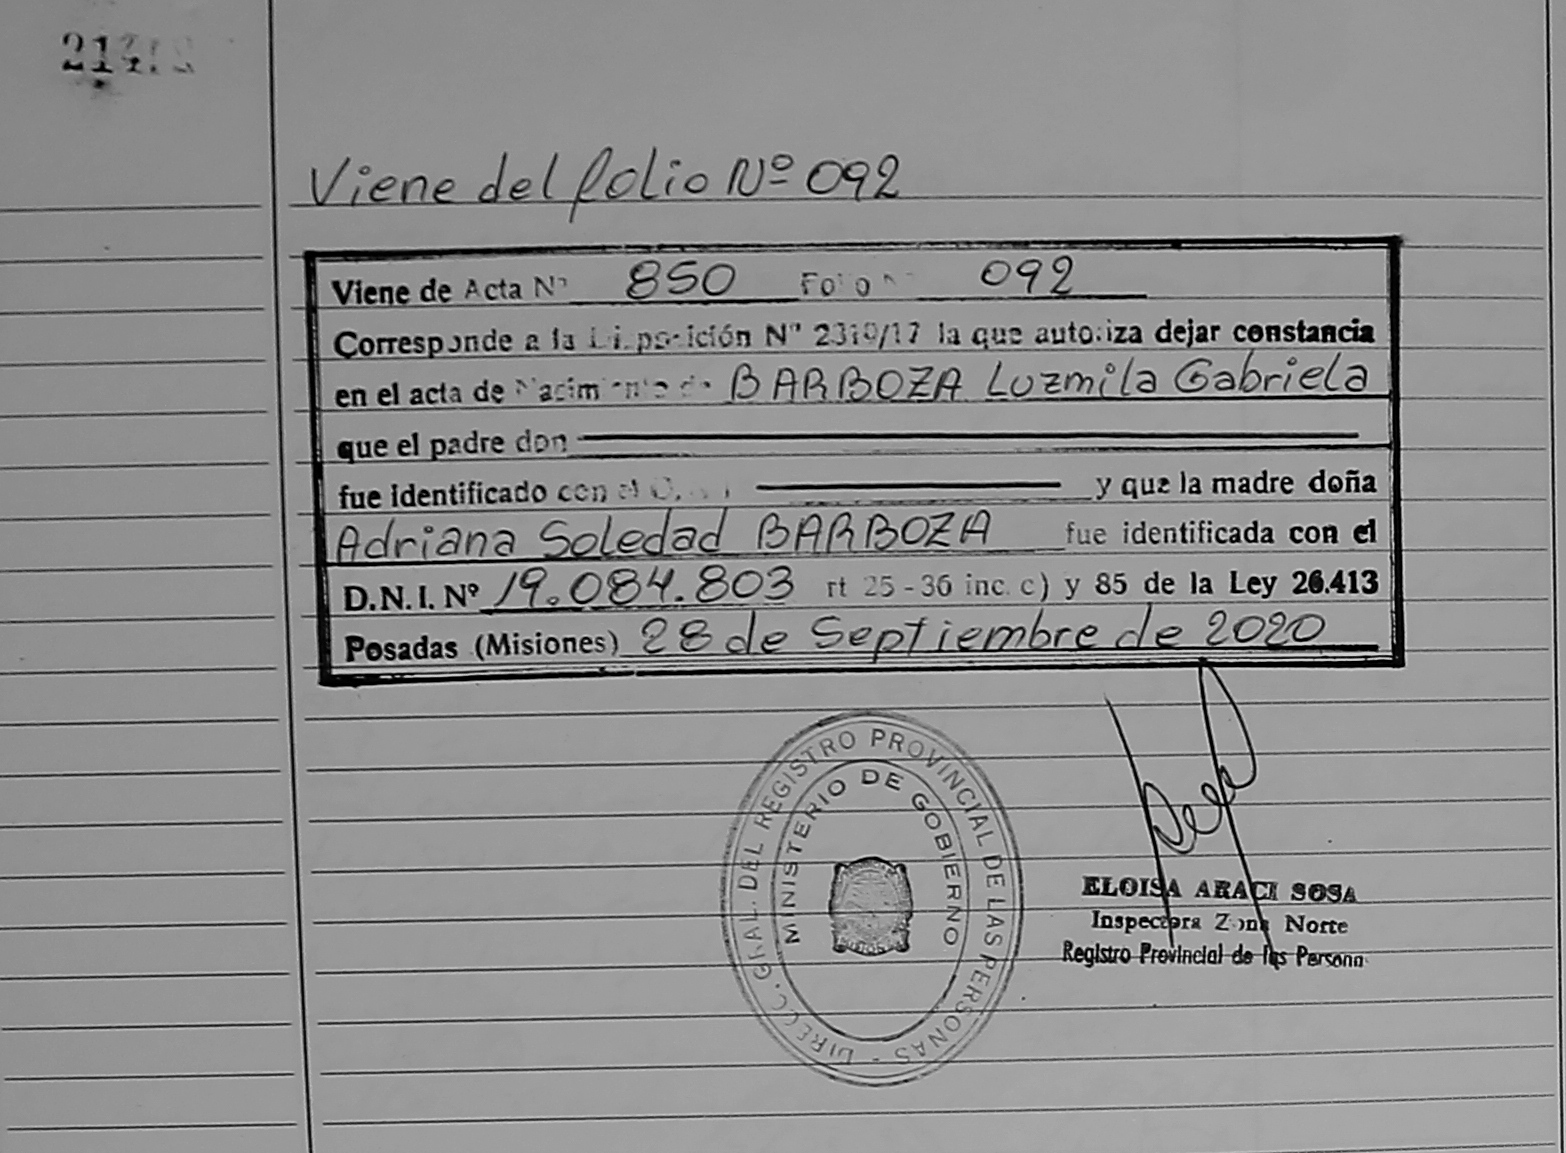 Viene del folio Nº 092
Viene de Acta Nº 850 Folio Nº 092
Corresponde a la Disposición Nº 2310/17 la que autoriza dejar constancia
en el acta de Nacimiento de BARBOZA Luzmila Gabriela
que el padre don
fue identificado con el y que la madre doña
Adriana Soledad BARBOZA fue identificada con el
D.N.I. Nº 19.084.803 rt 25-36 inc. c) y 85 de la Ley 26.413
Posadas (Misiones) 28 de Septiembre de 2020
DIRECC. GRAL. DEL REGISTRO PROVINCIAL DE LAS PERSONAS -
MINISTERIO DE GOBIERNO
ELOISA ARACI SOSA
Inspectora Zona Norte
Registro Provincial de las Persona